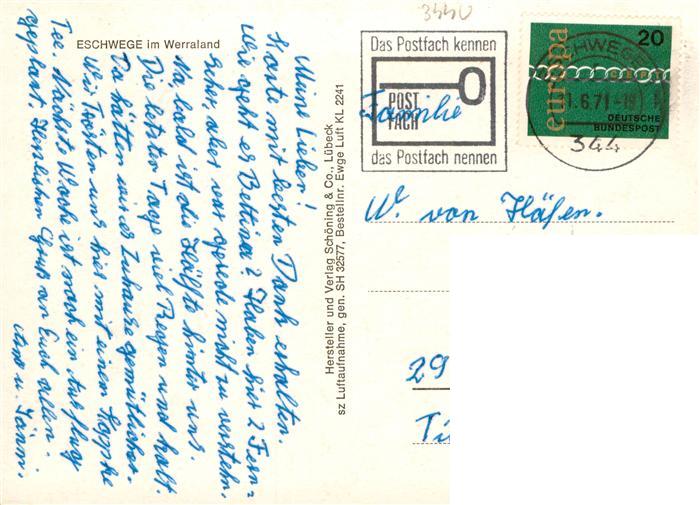 3440
ESCHWEGE im Werraland
Meine Lieben!
Karte mit bestem Dank erhalten.
Wie geht es Bettina? Haben hier 2 Fern-
seher, aber nur gerade nicht zu verstehn.
Na bald ist die Hälfte hinter uns.
Die letzten Tage viel Regen und kalt.
Da hätten wir es Zuhause gemütlicher.
Wir trösten uns hier mit einem Köppke
Tee. Nächste Woche ist noch ein Ausflug
geplant. Herzlichen Gruß an Euch allen.
u.
Hersteller und Verlag Schöning & Co., Lübeck
sz Luftaufnahme, gen. SH 32577, Bestellnr. Ewge Luft KL 2241
Das Postfach kennen
POST
FACH
das Postfach nennen
europa
20
DEUTSCHE
BUNDESPOST
ESCHWEGE
1.6.71-18
344
Familie
W. von Häfen.
29